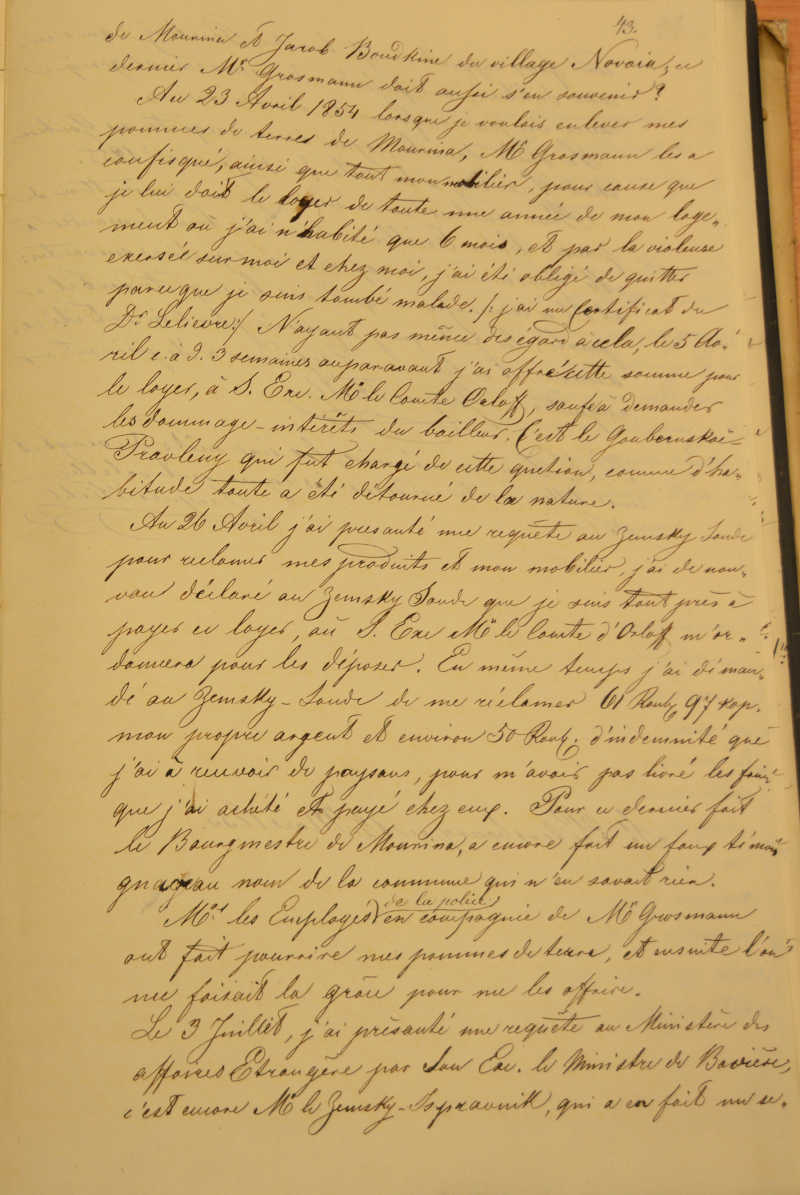 43.
de Mourina et Jacob Boudkine du village Novaia, ce
dernier Mr Grosmann doit aussi s'en souvenir?
Au 23 Avril 1854 lorsque je voulois enlever mes
pommes de terres de Mourina, Mr Grosmann les a
confisqué, ainsi que tout mon mobilier, pour cause que
je lui doit le loyer de toute une année de mon loge-
ment où j'ai n'habité que 6 mois, et par la violense
exersée sur moi et chez moi, j'ai été obligé de quitter
parceque je suis tombé malade. /: j'ai un Certificat du
Dr Lelievre :/ N'ayant pas même des égard à cela, le 5 Av-
ril c. à d. 3 semaines auparavant j'ai offré cette somme pour
le loyer, à S. Exe. Mr le Comte Orloff, sauf à demander
les dommage-intérêts du bailleur. C'est le Goubernskoë-
Pravleny qui fut chargé de cette quetion, comme d'ha-
bitude toute a été détourné de la nature.
Au 26 Avril j'ai presanté une requête au Zemsky Soude
pour reclamer mes produits et mon mobilier, j'ai de nou-
vau déclaré au Zemsky Soude que je suis tout près à
payer ce loyer, où S. Exe Mr le Comte d'Orloff m'or-
donnera pour les déposer. En même temps j'ai déman-
dé au Zemsky-Soude de me réclamer 61 Roub. 97 kop.
mon propre argent et environ 50 Roub. d'indemnité que
j'ai à recevoir de paysans, pour m'avoir pas livré les foins
que j'ai acheté et payé chez eux. Pour ce dernier fait
le Bourgmestre de Mourina, a encore fait un faux témoi-
gnage au nom de la commune qui n'en savait rien.
Mrs les Employés de la police en compagnie de Mr Grosmann
ont fait pourrire mes pommes de terre, et ensuite l'on
me faisait la grâce pour me les offrire.
Le 3 Juillet, j'ai présanté une requête au Ministère des
affaires Etrangère par Son Exe. le Ministre de Bavière,
c'est encore Mr le Zemsky-Ispravnik, qui a en fait une se-